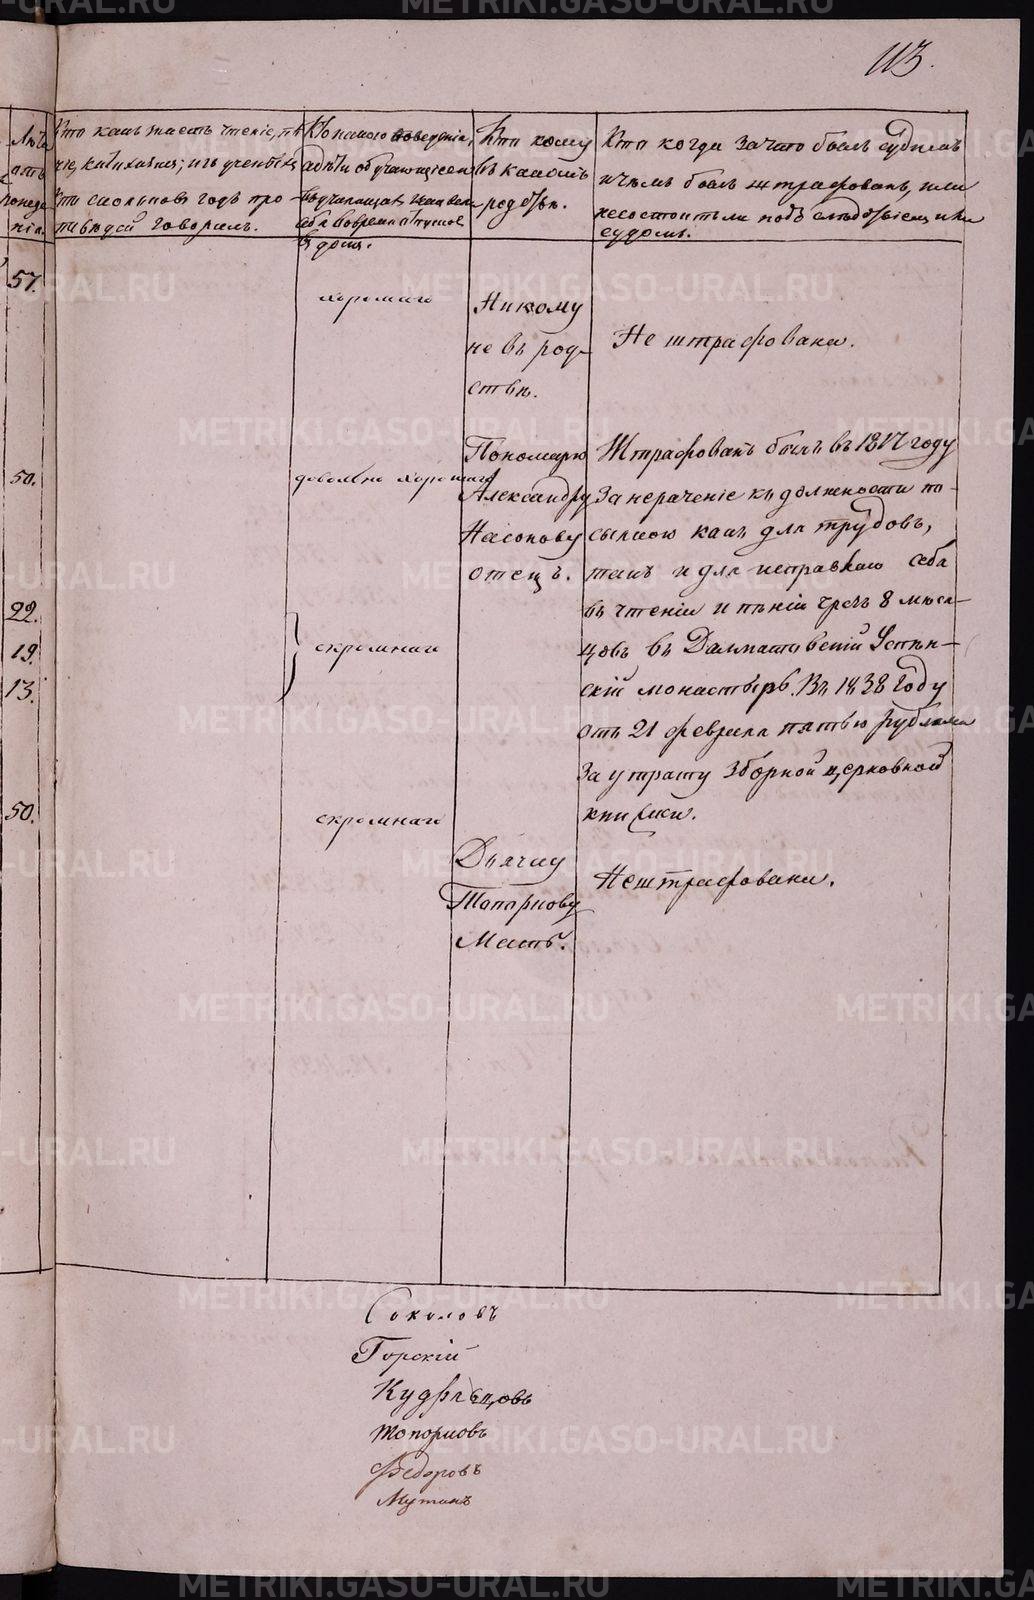 113.
Лѣта
Кто какъ знаетъ чтеніе, пѣ
ніе, катихизисъ, изъ ученыхъ
кто сколько въ годъ про
повѣдей говорилъ.
Кто какого поведенія,
Кто кому
въ какомъ
родствѣ.
Кто когда за что былъ судимъ
и чѣмъ былъ штрафованъ, или
не состоитъ ли подъ слѣдствіемъ и ли
судомъ.
57.
хорошаго
Никому
не въ род-
ствѣ.
Не штрафована.
50.
довольно хорошаго
Пономарю
Александру
Насонову
отецъ.
Штрафованъ былъ въ 1817 году
За нераченіе къ должности по-
сылкою какъ для трудовъ,
такъ и для исправленія себя
въ чтеніи и пѣніи чрезъ 8 мѣся-
цовъ въ Далматовскій Успен-
скій монастырь. Въ 1838 году
отъ 21 февраля пятью рублями
За утрату зборной церковной
книжки.
22.
19.
13.
скромнаго
50.
скромнаго
Дьячку
Топоркову
Мать.
Не штрафована.
Соколовъ
Горскій
Кудрявцовъ
Топорковъ
Федоровъ
Мутинъ
METRIKI.GASO-URAL.RU